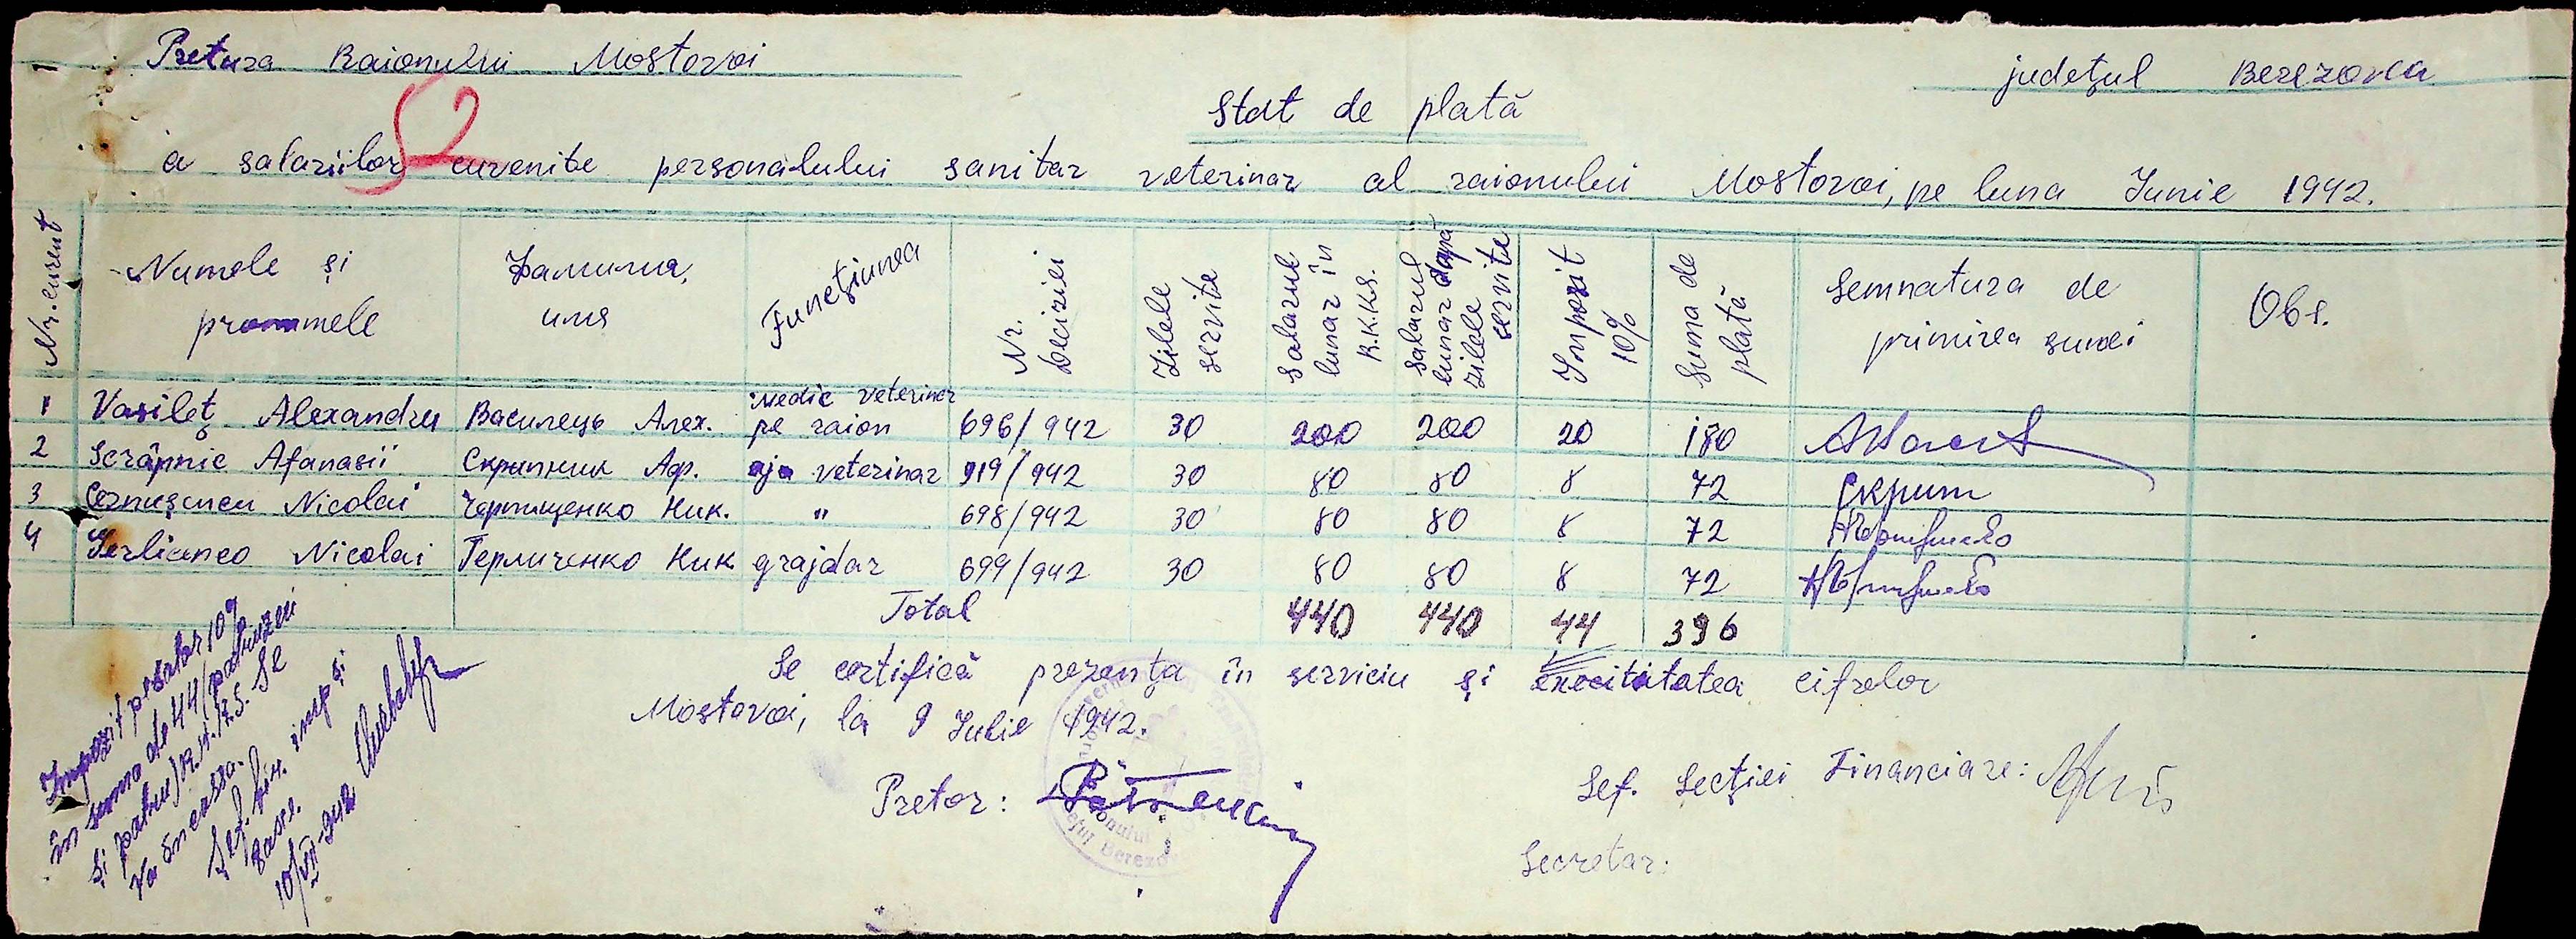 Pretura Raionului Mostovoi
județul Berezovca
52
Stat de plată
a salariilor cuvenite personalului sanitar veterinar al raionului Mostovoi, pe luna Iunie 1942.
Nr. curent | Numele și pronumele | Фамилия, имя | Funcțiunea | Nr. deciziei | Zilele servite | Salarul lunar în R.K.K.S. | Salarul lunar după zilele servite | Impozit 10% | Suma de plată | Semnatura de primirea sumei | Obs.
1 Vasileț Alexandru Василець Алех. Medic veterinar pe raion 696/942 30 200 200 20 180
2 Scrâpnic Afanasii Скрипник Аф. aja veterinar 919/942 30 80 80 8 72 Скрип
3 Cernușencu Nicolai Чернищенко Ник. " 698/942 30 80 80 8 72
4 Gerlicenco Nicolai Герличенко Ник. grajdar 699/942 30 80 80 8 72
Total 440 440 44 396
Se certifică prezența în serviciu și cifrelor
Mostovoi, la 9 Iulie 1942.
Pretor:
Șef. Secției Financiare:
Secretar:
Impozit pe salar 10%
în suma de 44 (patruzeci
și patru) R.K.K.S. se
va încassa.
Șef. fin. imp și
taxe.
10/VII-942